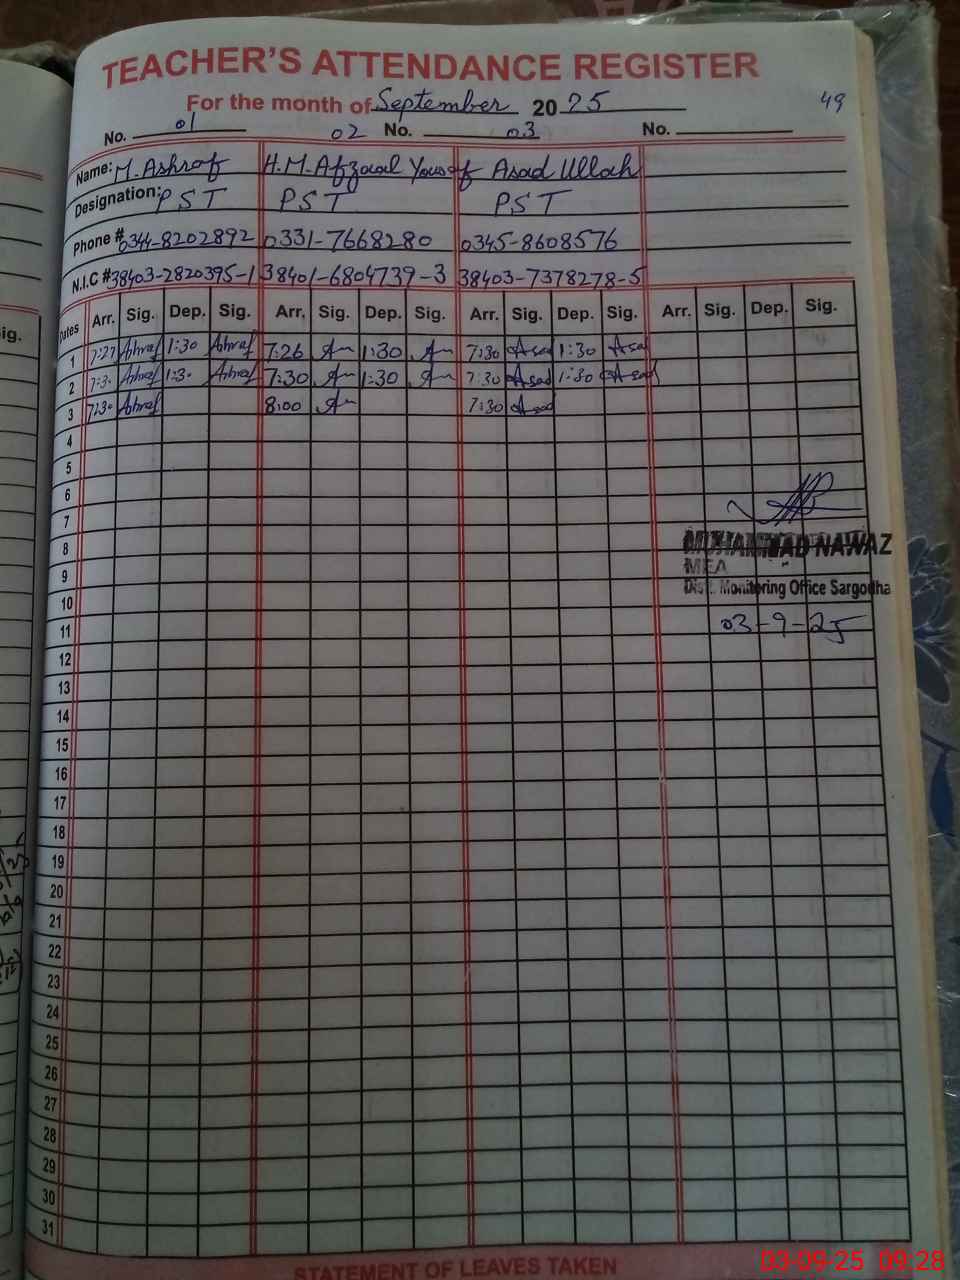 TEACHER'S ATTENDANCE REGISTER
For the month of September 2025
49
No. 01 02 No. 03 No.
Name: M. Ashraf H.M. Afzaal Yousaf Asad Ullah
Designation: PST PST PST
Phone # 0344-8202892 0331-7668280 0345-8608576
N.I.C # 38403-2820395-1 38401-6804739-3 38403-7378278-5
Dates Arr. Sig. Dep. Sig. Arr. Sig. Dep. Sig. Arr. Sig. Dep. Sig. Arr. Sig. Dep. Sig.
ig.
1 7:27 Ashraf 1:30 Ashraf 7:26 1:30 7:30 Asad 1:30 Asad
2 7:30 Ashraf 1:30 Ashraf 7:30 1:30 7:30 Asad 1:30 Asad
3 7:30 Ashraf 8:00 7:30 Asad
4
5
6
7
8
9
10
11
12
13
14
15
16
17
18
19
20
21
22
23
24
25
26
27
28
29
30
31
MUHAMMAD NAWAZ
MEA
Distt. Monitoring Office Sargodha
03-9-25
STATEMENT OF LEAVES TAKEN
03-09-25 09:28